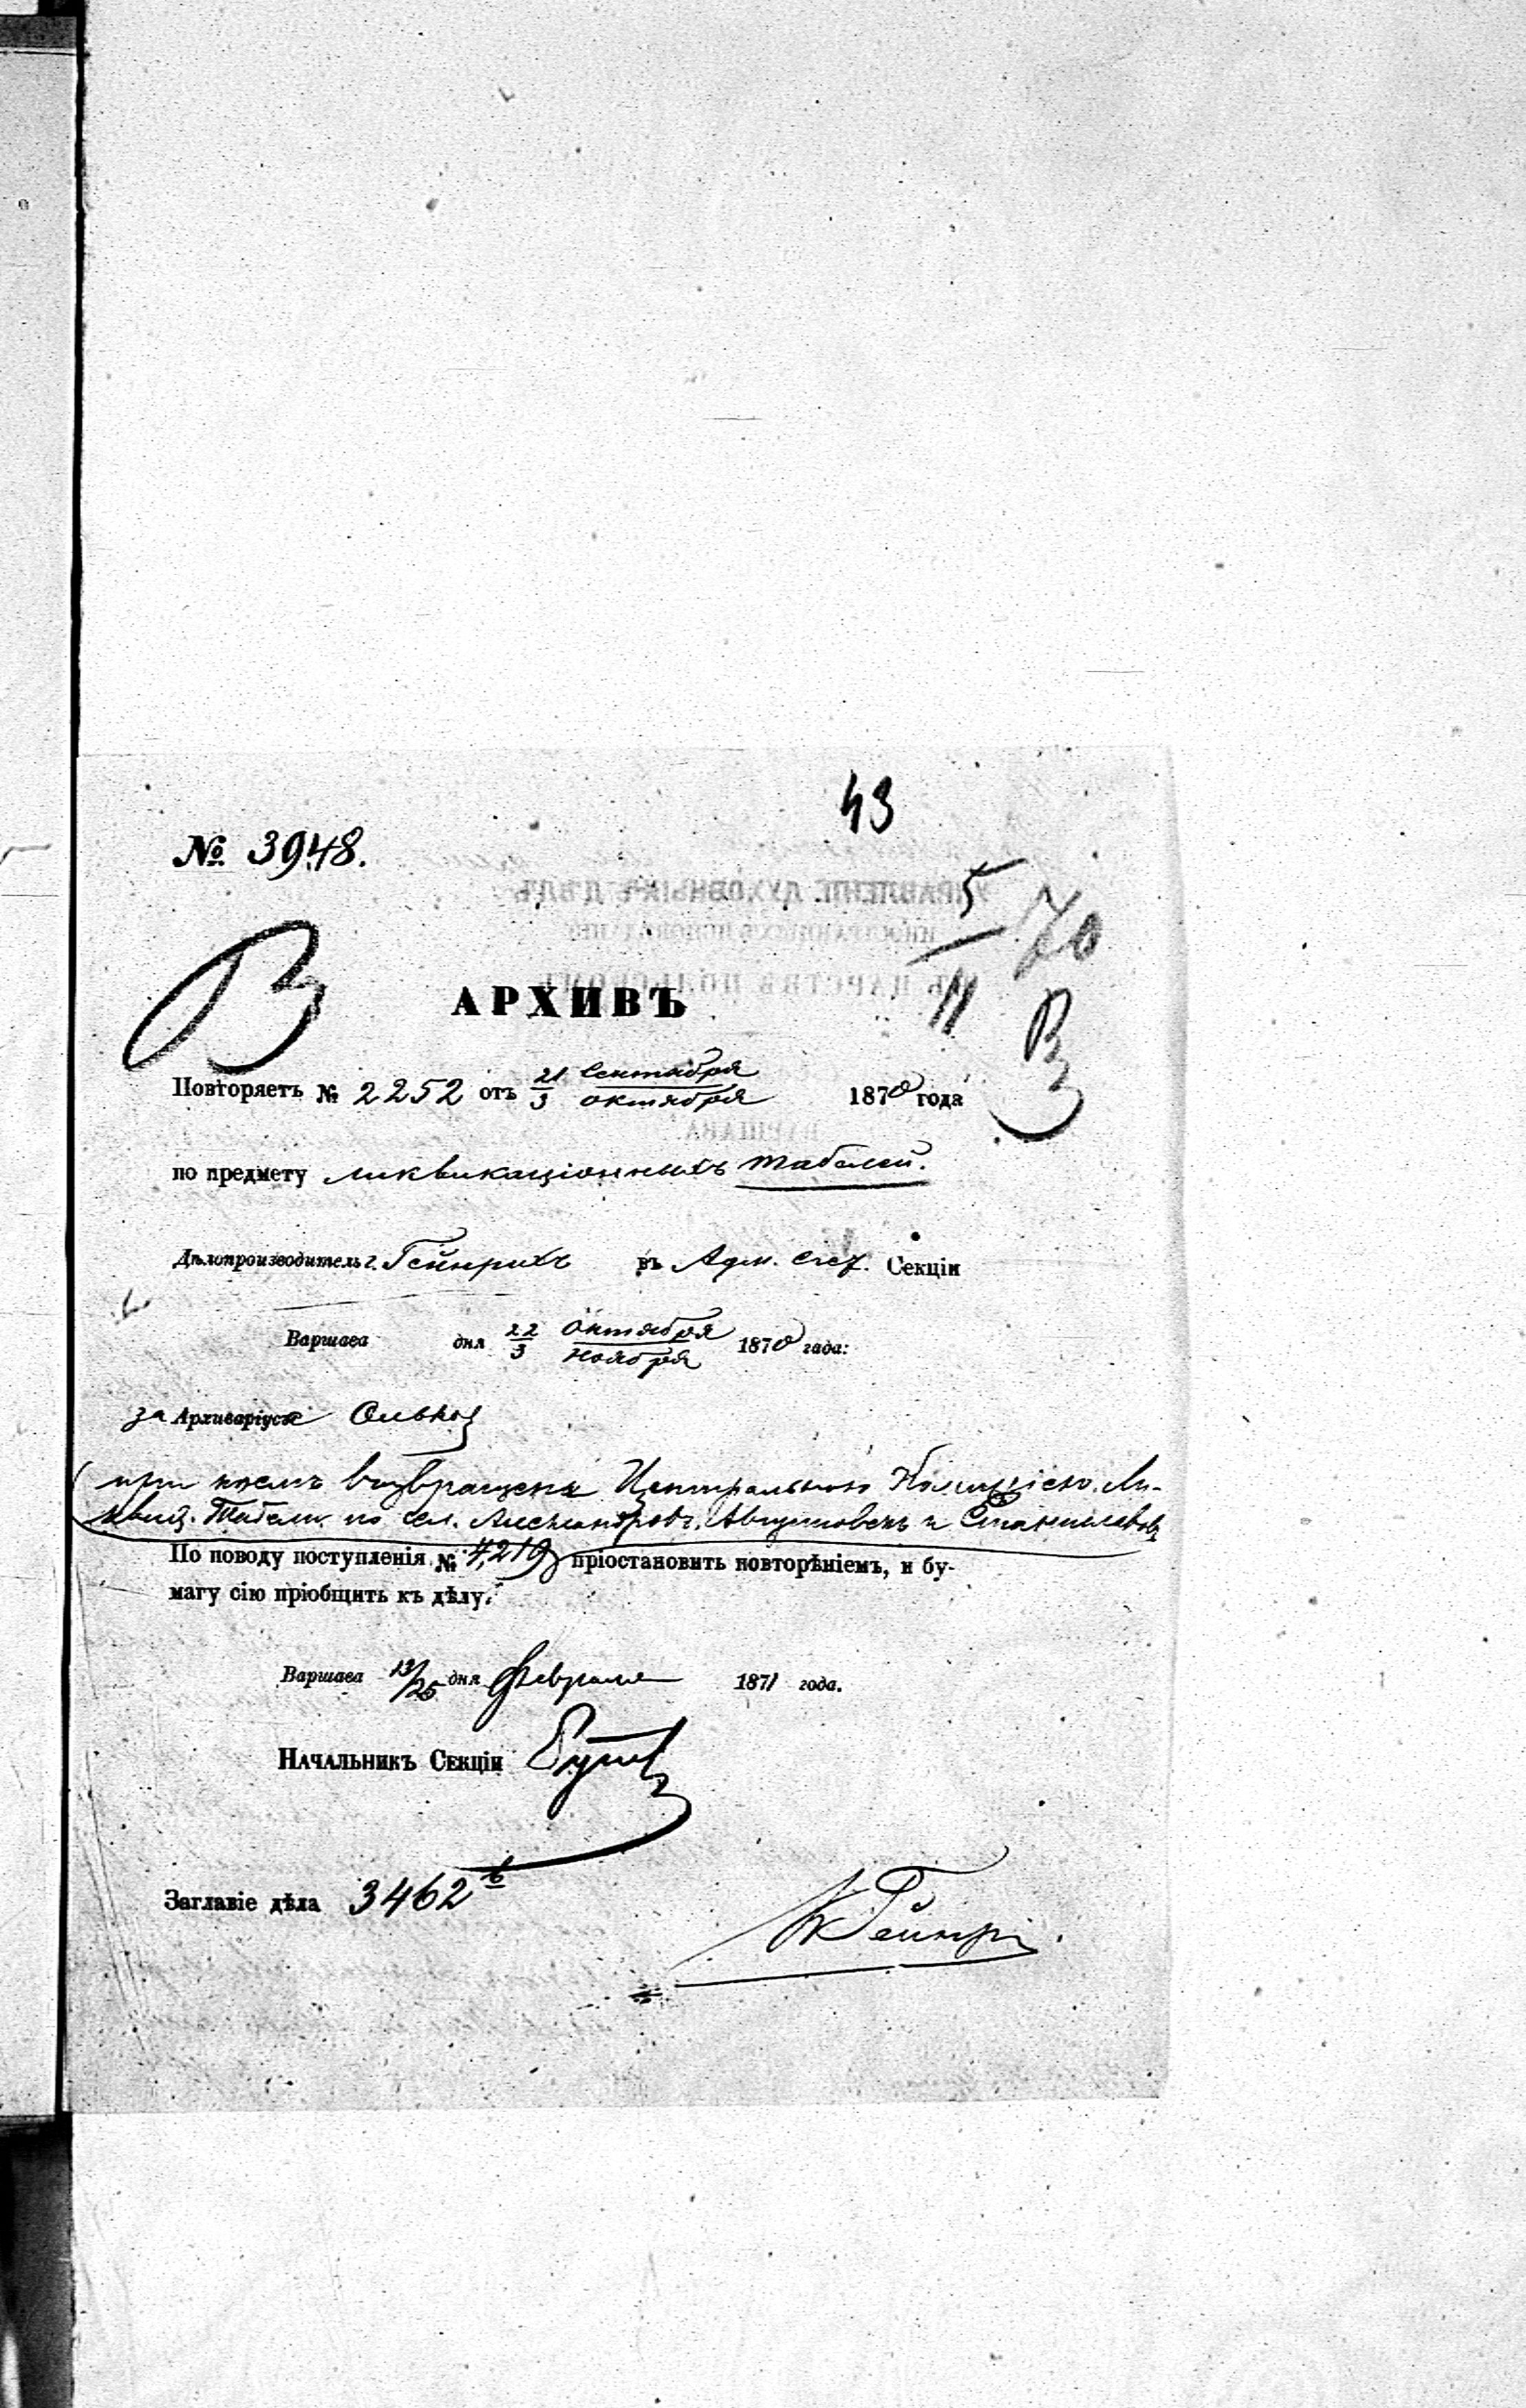 43
№ 3948.
5/11 70
АРХИВЪ
Повторяетъ № 2252 отъ 21 Сентября / 3 октября 1870 года
по предмету ликвикаціонныхъ табелей.
Дѣлопроизводитель г. Гейнрихъ въ Адм. Секціи
Варшава дня 22 октября / 3 ноября 1870 года:
за Архиваріуса
при коемъ возвращены Центральною Коммисіею Ли-
квид. Табели по сел. Александровъ, Августовекъ и Станиславовъ
По поводу поступленія № 4,219 пріостановить повтореніемъ, и бу-
магу сію пріобщить къ дѣлу.
Варшава 13/25 дня Февраля 1871 года.
Начальникъ Секціи
Заглавіе дѣла 3462 б
Гейнри